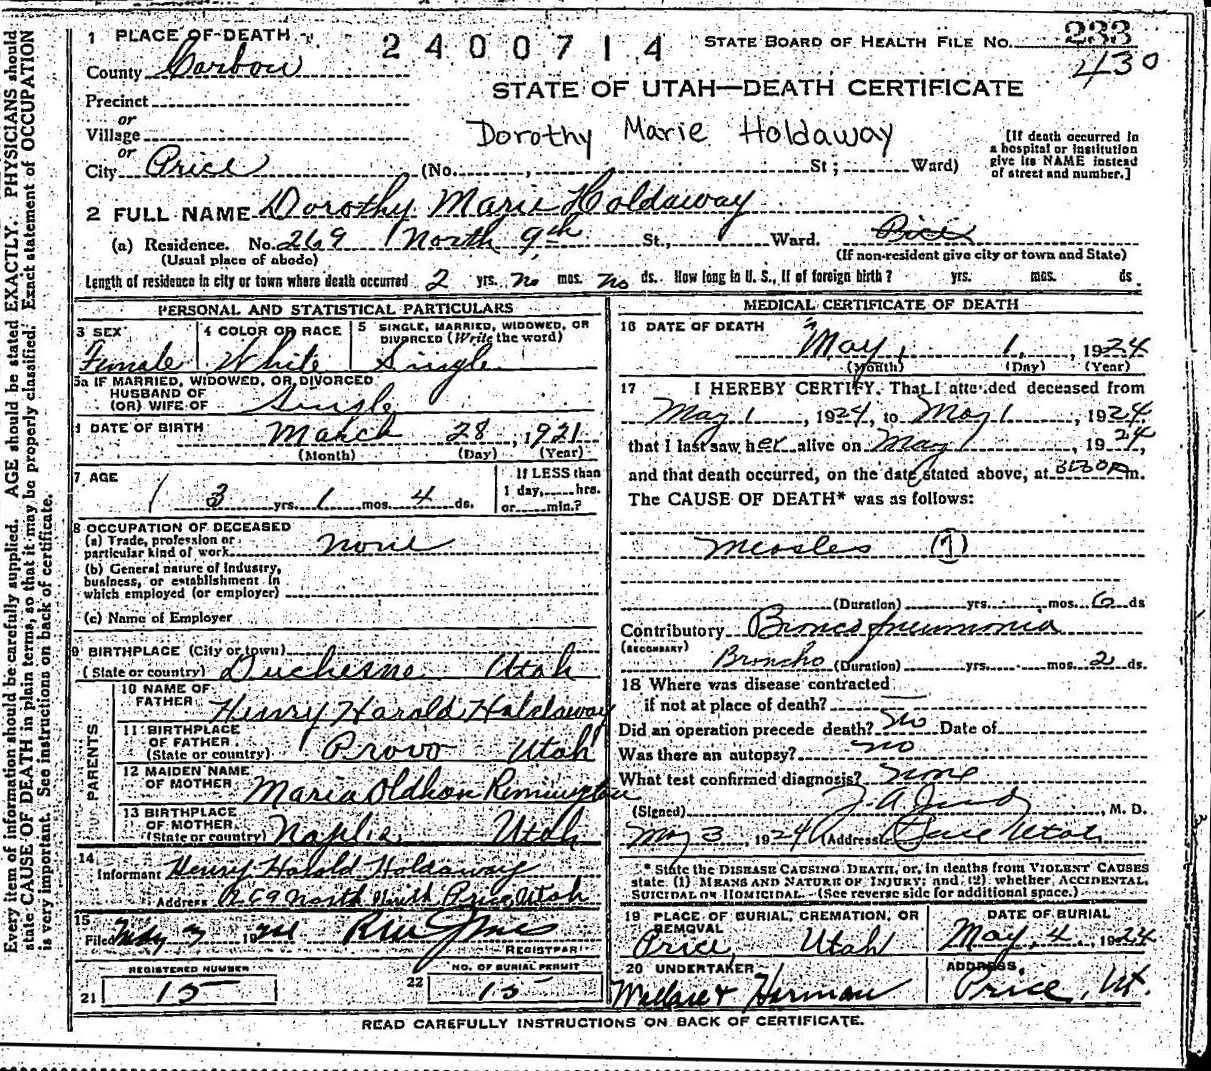 Every item of information should be carefully supplied. AGE should be stated EXACTLY. PHYSICIANS should
state CAUSE OF DEATH in plain terms, so that it may be properly classified. Exact statement of OCCUPATION
is very important. See instructions on back of certificate.
1 PLACE OF DEATH
2400714
STATE BOARD OF HEALTH FILE NO. 233
430
County Carbon
STATE OF UTAH—DEATH CERTIFICATE
Precinct
or
Village
Dorothy Marie Holdaway
[If death occurred in a hospital or institution give its NAME instead of street and number.]
or
City Price (No. , St ; Ward)
2 FULL NAME Dorothy Marie Holdaway
(a) Residence. No. 269 North 9th St., Ward. Price
(Usual place of abode) (If non-resident give city or town and State)
Length of residence in city or town where death occurred 2 yrs. no mos. no ds. How long in U. S., if of foreign birth? yrs. mos. ds.
PERSONAL AND STATISTICAL PARTICULARS
3 SEX Female
4 COLOR OR RACE White
5 SINGLE, MARRIED, WIDOWED, OR DIVORCED (Write the word) Single
5a IF MARRIED, WIDOWED, OR DIVORCED
HUSBAND OF
(OR) WIFE OF Single
DATE OF BIRTH March 28, 1921
(Month) (Day) (Year)
7 AGE 3 yrs. 1 mos. 4 ds.
If LESS than
1 day, hrs.
or min.?
8 OCCUPATION OF DECEASED
(a) Trade, profession or
particular kind of work none
(b) General nature of industry,
business, or establishment in
which employed (or employer)
(c) Name of Employer
9 BIRTHPLACE (City or town)
(State or country) Duchesne Utah
PARENTS
10 NAME OF
FATHER Henry Harold Holdaway
11 BIRTHPLACE
OF FATHER
(State or country) Provo Utah
12 MAIDEN NAME
OF MOTHER Maria Oldhon Remington
13 BIRTHPLACE
OF MOTHER
(State or country) Naples Utah
14
Informant Henry Harold Holdaway
Address 269 North Ninth Price, Utah
15
Filed May 3 192
REGISTRAR
REGISTERED NUMBER
21 15
NO. OF BURIAL PERMIT
22 15
MEDICAL CERTIFICATE OF DEATH
16 DATE OF DEATH
May 1, 1924
(Month) (Day) (Year)
17 I HEREBY CERTIFY, That I attended deceased from
May 1, 1924, to May 1, 1924
that I last saw her alive on May 1 1924,
and that death occurred, on the date stated above, at m.
The CAUSE OF DEATH* was as follows:
Measles (7)
(Duration) yrs. mos. 6 ds
Contributory Bronco pneumonia
(SECONDARY)
Broncho (Duration) yrs. mos. 2 ds.
18 Where was disease contracted
if not at place of death?
Did an operation precede death? no Date of
Was there an autopsy? no
What test confirmed diagnosis? none
(Signed) , M. D.
May 3, 1924 (Address) Price Utah
* State the DISEASE CAUSING DEATH, or, in deaths from VIOLENT CAUSES
state (1) MEANS AND NATURE OF INJURY; and (2) whether ACCIDENTAL,
SUICIDAL OR HOMICIDAL. (See reverse side for additional space.)
19 PLACE OF BURIAL, CREMATION, OR
REMOVAL
Price, Utah
DATE OF BURIAL
May 4, 1924
20 UNDERTAKER
Wallace & Harman
ADDRESS
Price, Ut.
READ CAREFULLY INSTRUCTIONS ON BACK OF CERTIFICATE.